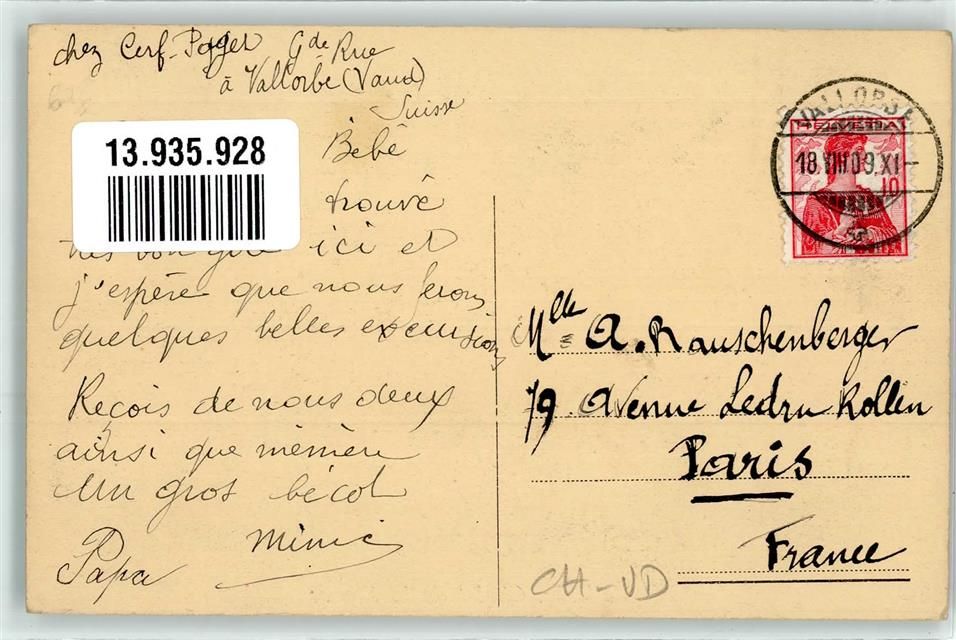 chez Cerf- Gde Rue
à Vallorbe (Vaud)
Suisse
13.935.928
Bébé
trouvé
ici et
j'espère que nous ferons
quelques belles excursions
Reçois de nous deux
ainsi que mémère
Un gros bécot
Mimie
Papa
VALLORBE
HELVETIA
18.VIII.09.XI
10
Mlle A. Rauschenberger
79 Avenue Ledru Rollin
Paris
France
CH-VD